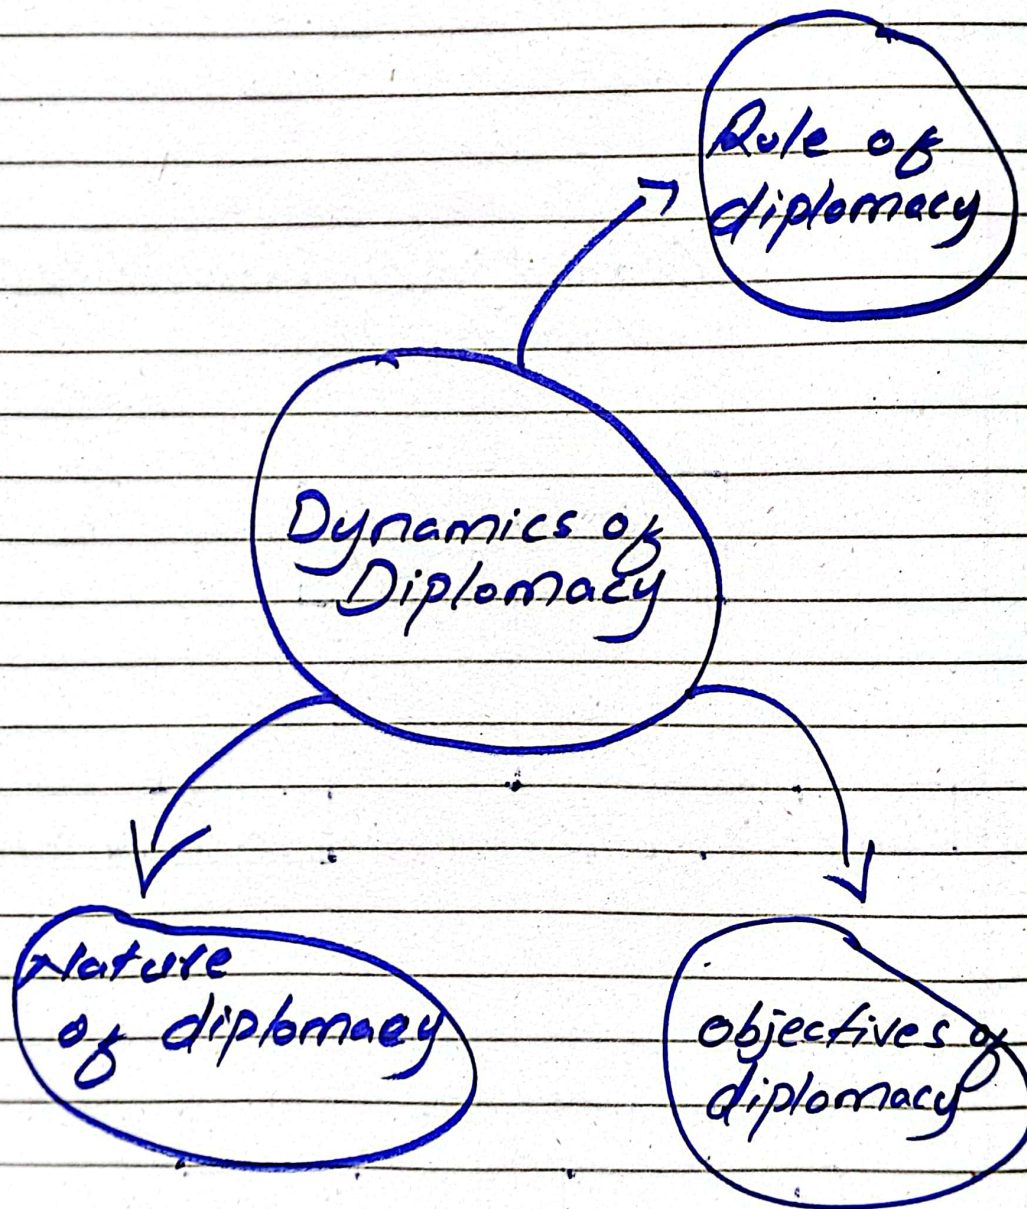 Role of
diplomacy
Dynamics of
Diplomacy
Nature
of diplomacy
objectives of
diplomacy